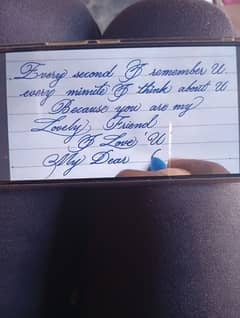 Every second I remember U.
every minute I think about U
Because you are my
Lovely Friend
I Love U
My Dear